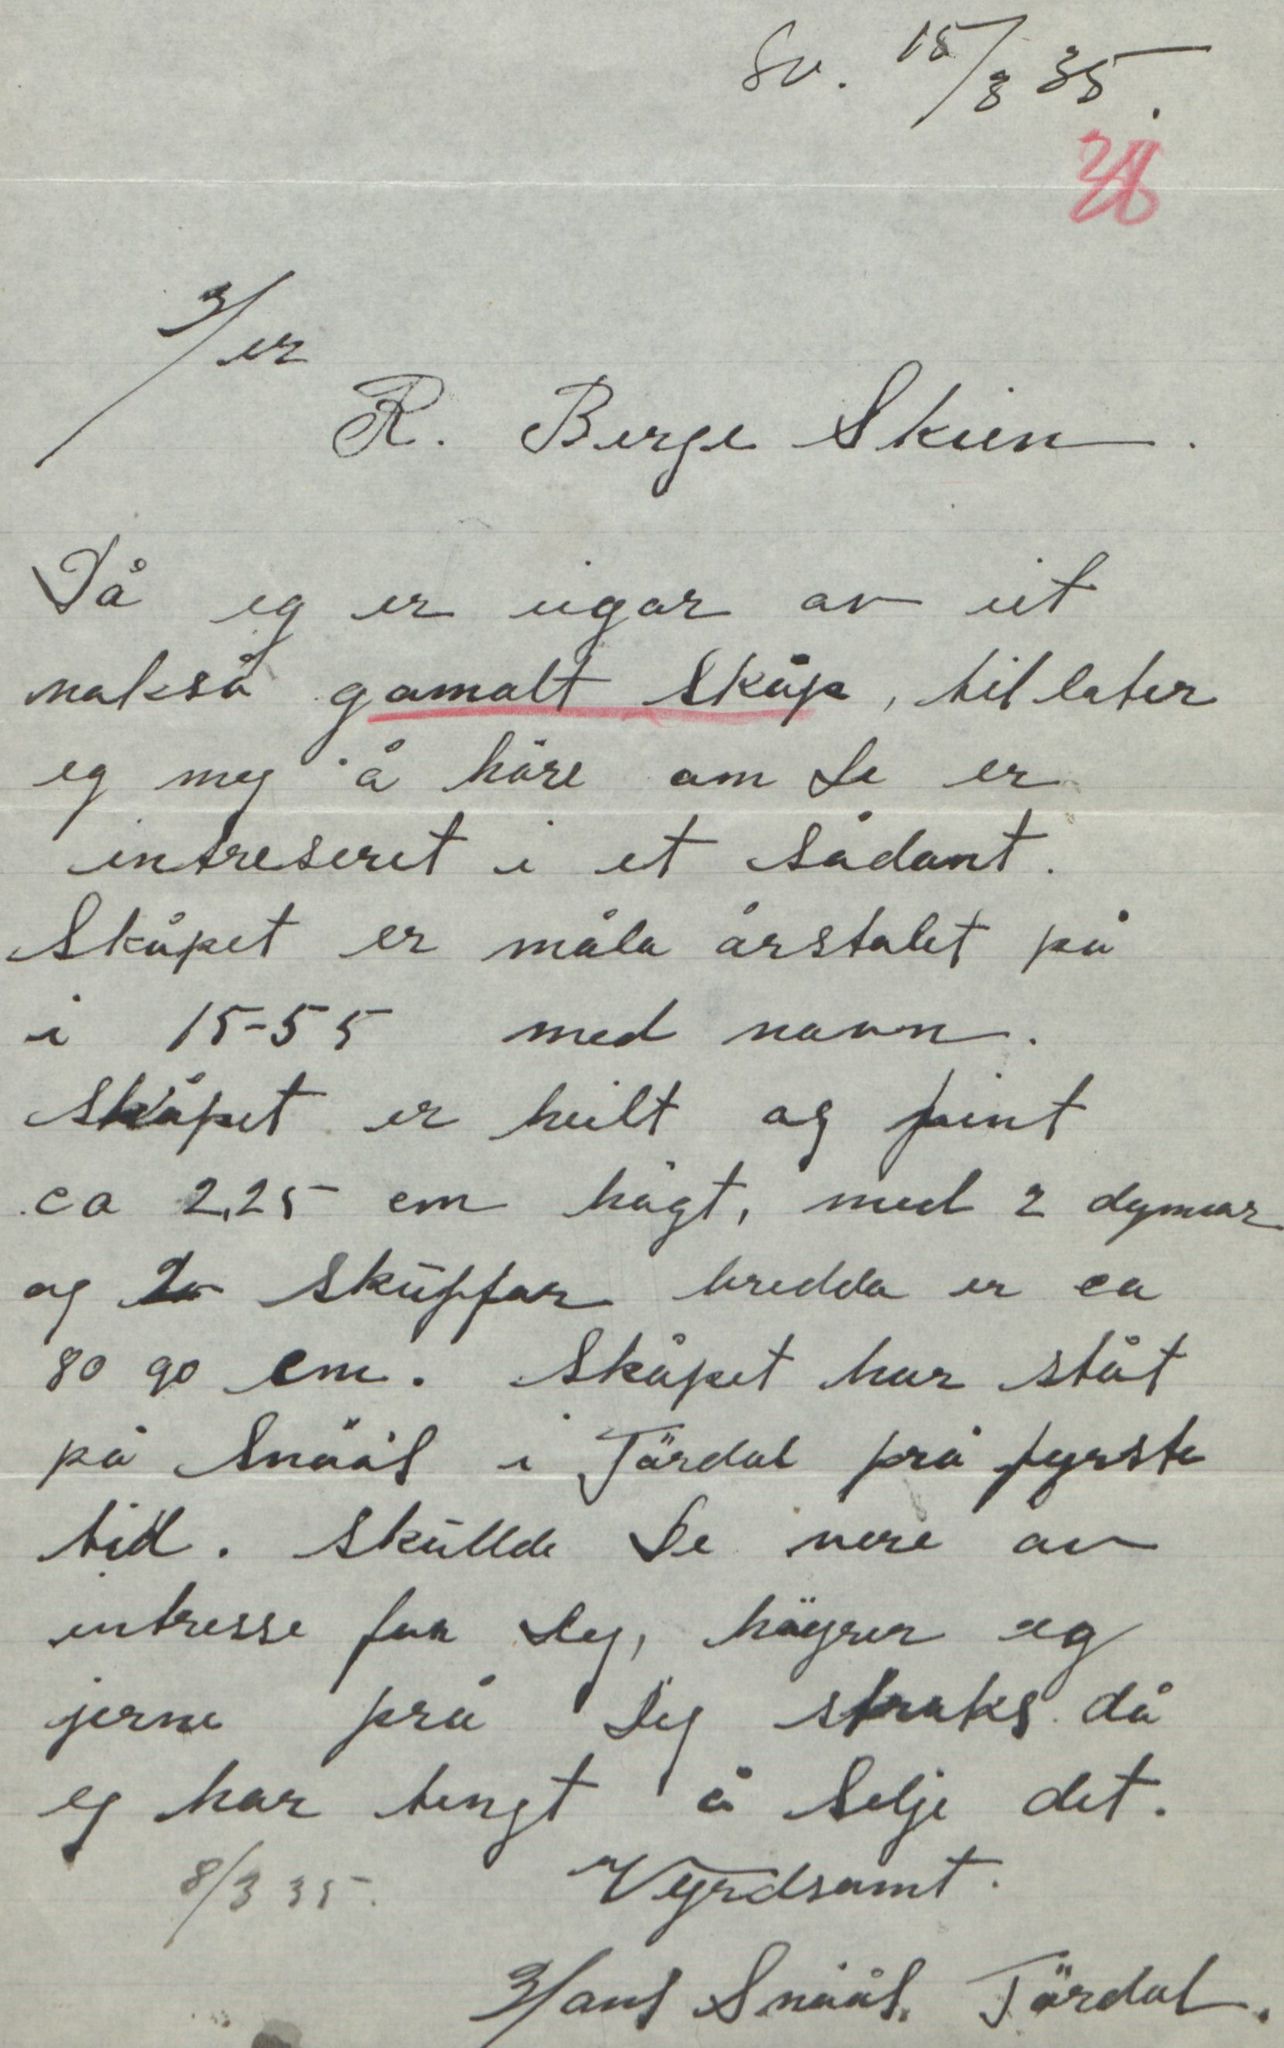 Sv. 15/3 35.
Her
R. Berge Skien.
Då eg er eigar av eit
nakså gamalt skåp, tillater
eg meg å höre om De er
intreseret i et sådant.
Skåpet er måla årstalet på
i 15-55 med navn.
Skåpet er heilt og feint
ca 2,25 cm högt, med 2 dynnar
og 2 skuffar bredda er ca
80 90 cm. Skåpet har ståt
på Snåås i Tördal frå fyrste
tid. Skullde De vere av
intresse for Deg, höyrer eg
jerne frå Deg straks då
eg har tengt å selje det.
8/3 35. Vyrdsamt.
Hans Snåås. Tördal.